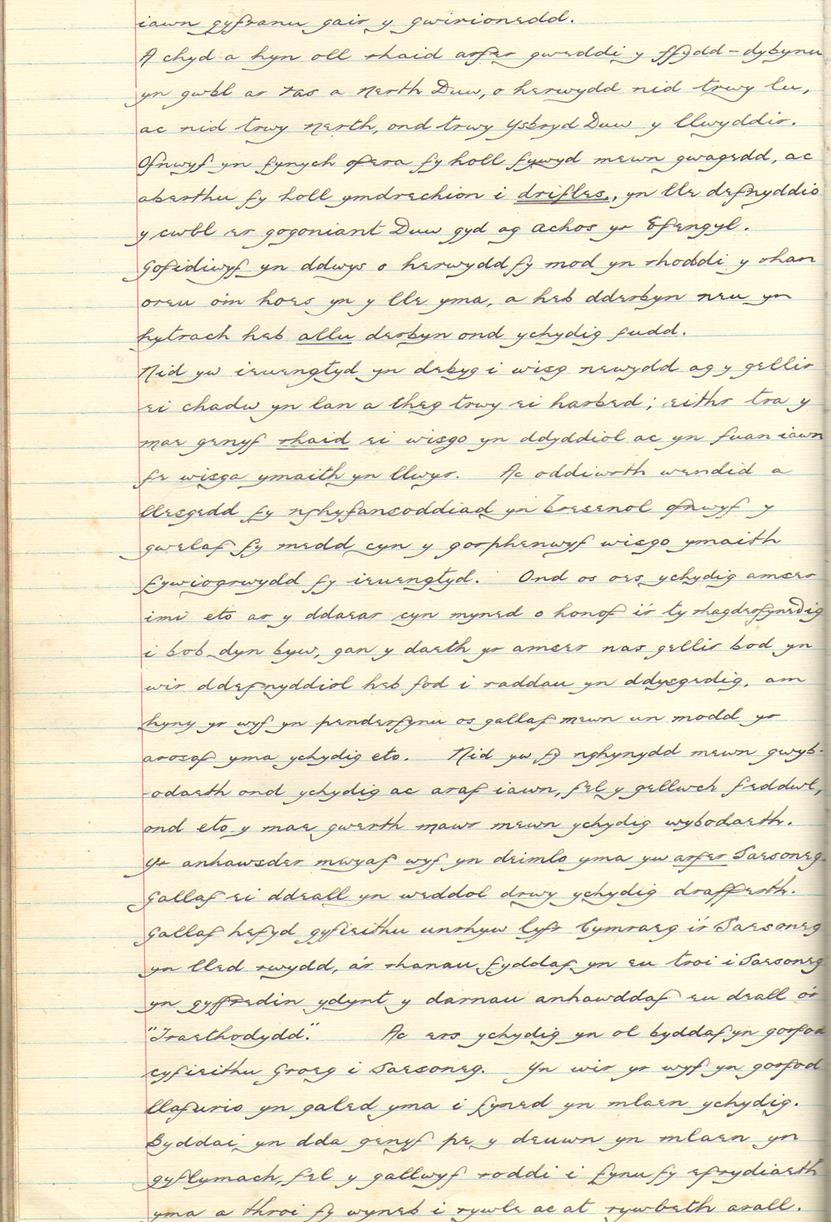 iawn gyfranu gair y gwirionedd.
A chyd a hyn oll rhaid arfer gweddi y ffydd - dybynu
yn gwbl ar ras a nerth Duw, o herwydd nid trwy lu,
ac nid trwy nerth, ond trwy Ysbryd Duw y llwyddir.
Ofnwyf yn fynych ofera fy holl fywyd mewn gwagedd, ac
aberthu fy holl ymdrechion i drifles, yn lle defnyddio
y cwbl er gogoniant Duw gyd ag achos yr Efengyl.
Gofidiwyf yn ddwys o herwydd fy mod yn rhoddi y rhan
oreu o'm hoes yn y lle yma, a heb dderbyn neu yn
hytrach heb allu derbyn ond ychydig fudd.
Nid yw ieuengtyd yn debyg i wisg newydd ag y gellir
ei chadw yn lan a theg trwy ei harbed; eithr tra y
mae genyf rhaid ei wisgo yn ddyddiol ac yn fuan iawn
fe wisga ymaith yn llwyr. Ac oddiwrth wendid a
llesgedd fy nghyfansoddiad yn bresenol ofnwyf y
gwelaf fy medd cyn y gorphenwyf wisgo ymaith
fywiogrwydd fy ieuengtyd. Ond os oes ychydig amser
imi eto ar y ddaear cyn myned o honof i'r ty rhagderfynedig
i bob dyn byw, gan y daeth yr amser nas gellir bod yn
wir ddefnyddiol heb fod i raddau yn ddysgedig, am
hyny yr wyf yn penderfynu os gallaf mewn un modd yr
arosaf yma ychydig eto. Nid yw fy nghynydd mewn gwyb-
-odaeth ond ychydig ac araf iawn, fel y gellwch feddwl,
ond eto y mae gwerth mawr mewn ychydig wybodaeth.
Yr anhawsder mwyaf wyf yn deimlo yma yw arfer Saesoneg.
Gallaf ei ddeall yn weddol drwy ychydig drafferth.
Gallaf hefyd gyfieithu unrhyw lyfr Cymraeg i'r Saesoneg
yn lled rwydd, a'r rhanau fyddaf yn eu troi i Saesoneg
yn gyffredin ydynt y darnau anhawddaf eu deall o'r
"Traethodydd." Ac ers ychydig yn ol byddaf yn gorfod
cyfieithu Groeg i Saesoneg. Yn wir yr wyf yn gorfod
llafurio yn galed yma i fyned yn mlaen ychydig.
Byddai yn dda genyf pe y deuwn yn mlaen yn
gyflymach, fel y gallwyf roddi i fynu fy efrydiaeth
yma a throi fy wyneb i rywle ac at rywbeth arall.